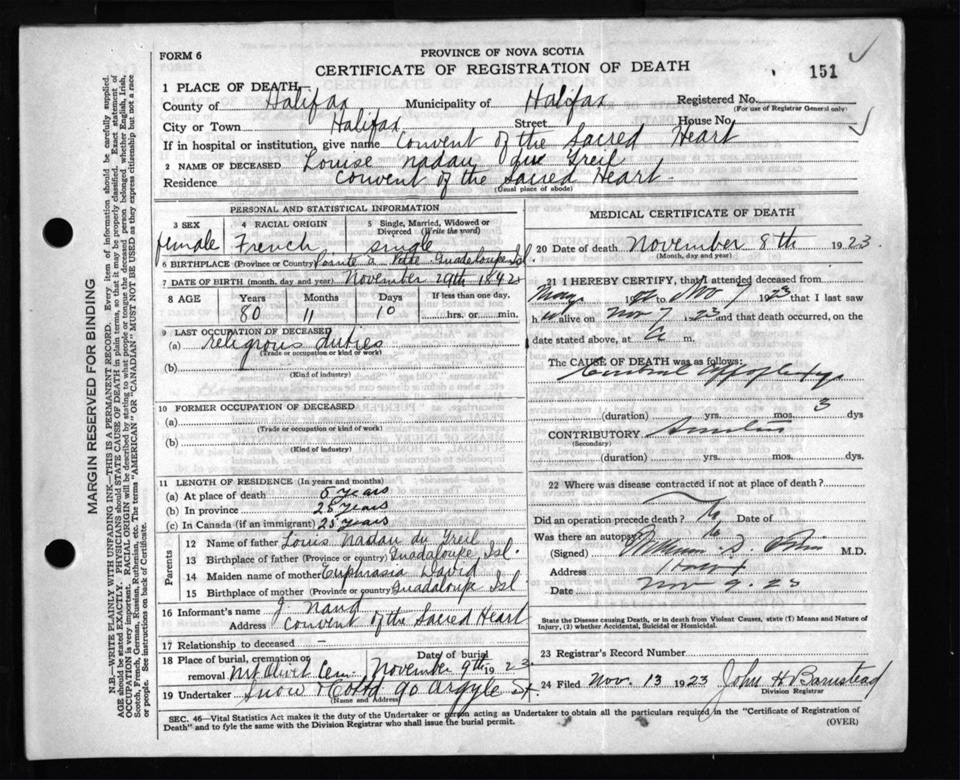 FORM 6
PROVINCE OF NOVA SCOTIA
CERTIFICATE OF REGISTRATION OF DEATH
151
1 PLACE OF DEATH—
County of Halifax Municipality of Halifax Registered No.
(For use of Registrar General only)
City or Town Halifax Street House No.
If in hospital or institution, give name Convent of the Sacred Heart
2 NAME OF DECEASED Louise Nadau Greil
Residence Convent of the Sacred Heart
(Usual place of abode)
PERSONAL AND STATISTICAL INFORMATION
3 SEX female
4 RACIAL ORIGIN French
5 Single, Married, Widowed or Divorced (Write the word) single
6 BIRTHPLACE (Province or Country) Pointe a Guadaloupe Isl.
7 DATE OF BIRTH (month, day and year) November 29th 1842
8 AGE Years 80 Months 11 Days 10 If less than one day. hrs. or min.
9 LAST OCCUPATION OF DECEASED
(a) religious duties
(Trade or occupation or kind of work)
(b)
(Kind of industry)
10 FORMER OCCUPATION OF DECEASED
(a)
(Trade or occupation or kind of work)
(b)
(Kind of industry)
11 LENGTH OF RESIDENCE (In years and months)
(a) At place of death 5 years
(b) In province 25 years
(c) In Canada (if an immigrant) 25 years
Parents
12 Name of father Louis Nadau du Greil
13 Birthplace of father (Province or country) Guadaloupe Isl.
14 Maiden name of mother Euphrasia David
15 Birthplace of mother (Province or country) Guadaloupe Isl
16 Informant's name J. Nand
Address Convent of the Sacred Heart
17 Relationship to deceased —
18 Place of burial, cremation or removal Mt Olivet Cem. Date of burial November 9th 1923.
19 Undertaker Snow & Co Ltd 90 Argyle St.
(Name and Address)
MEDICAL CERTIFICATE OF DEATH
20 Date of death November 8th 1923.
(Month, day and year)
21 I HEREBY CERTIFY, that I attended deceased from
May to Nov 7 1923 that I last saw
h alive on Nov 7 1923 and that death occurred, on the
date stated above, at m.
The CAUSE OF DEATH was as follows:
Cerebral Apoplexy
(duration) yrs. mos. 3 dys
CONTRIBUTORY
(Secondary)
(duration) yrs. mos. dys.
22 Where was disease contracted if not at place of death?
Did an operation precede death? No Date of
Was there an autopsy? No
(Signed) M.D.
Address
Date Nov 9. 23
State the Disease causing Death, or in death from Violent Causes, state (1) Means and Nature of Injury, (2) whether Accidental, Suicidal or Homicidal.
23 Registrar's Record Number
24 Filed Nov. 13 1923 John H Barnstead
Division Registrar
SEC. 46—Vital Statistics Act makes it the duty of the Undertaker or person acting as Undertaker to obtain all the particulars required in the "Certificate of Registration of
Death" and to fyle the same with the Division Registrar who shall issue the burial permit.
(OVER)
MARGIN RESERVED FOR BINDING
N.B.—WRITE PLAINLY WITH UNFADING INK—THIS IS A PERMANENT RECORD. Every item of information should be carefully supplied.
AGE should be stated EXACTLY. PHYSICIANS should STATE CAUSE OF DEATH in plain terms, so that it may be properly classified. Exact statement of
OCCUPATION is very important. RACIAL ORIGIN will be described by stating to what people or tongue the deceased person belonged, whether English, Irish,
Scotch, French, German, Russian, Ruthenian, etc. The terms "AMERICAN" OR "CANADIAN" MUST NOT BE USED as they express citizenship but not a race
or people. See instructions on back of Certificate.